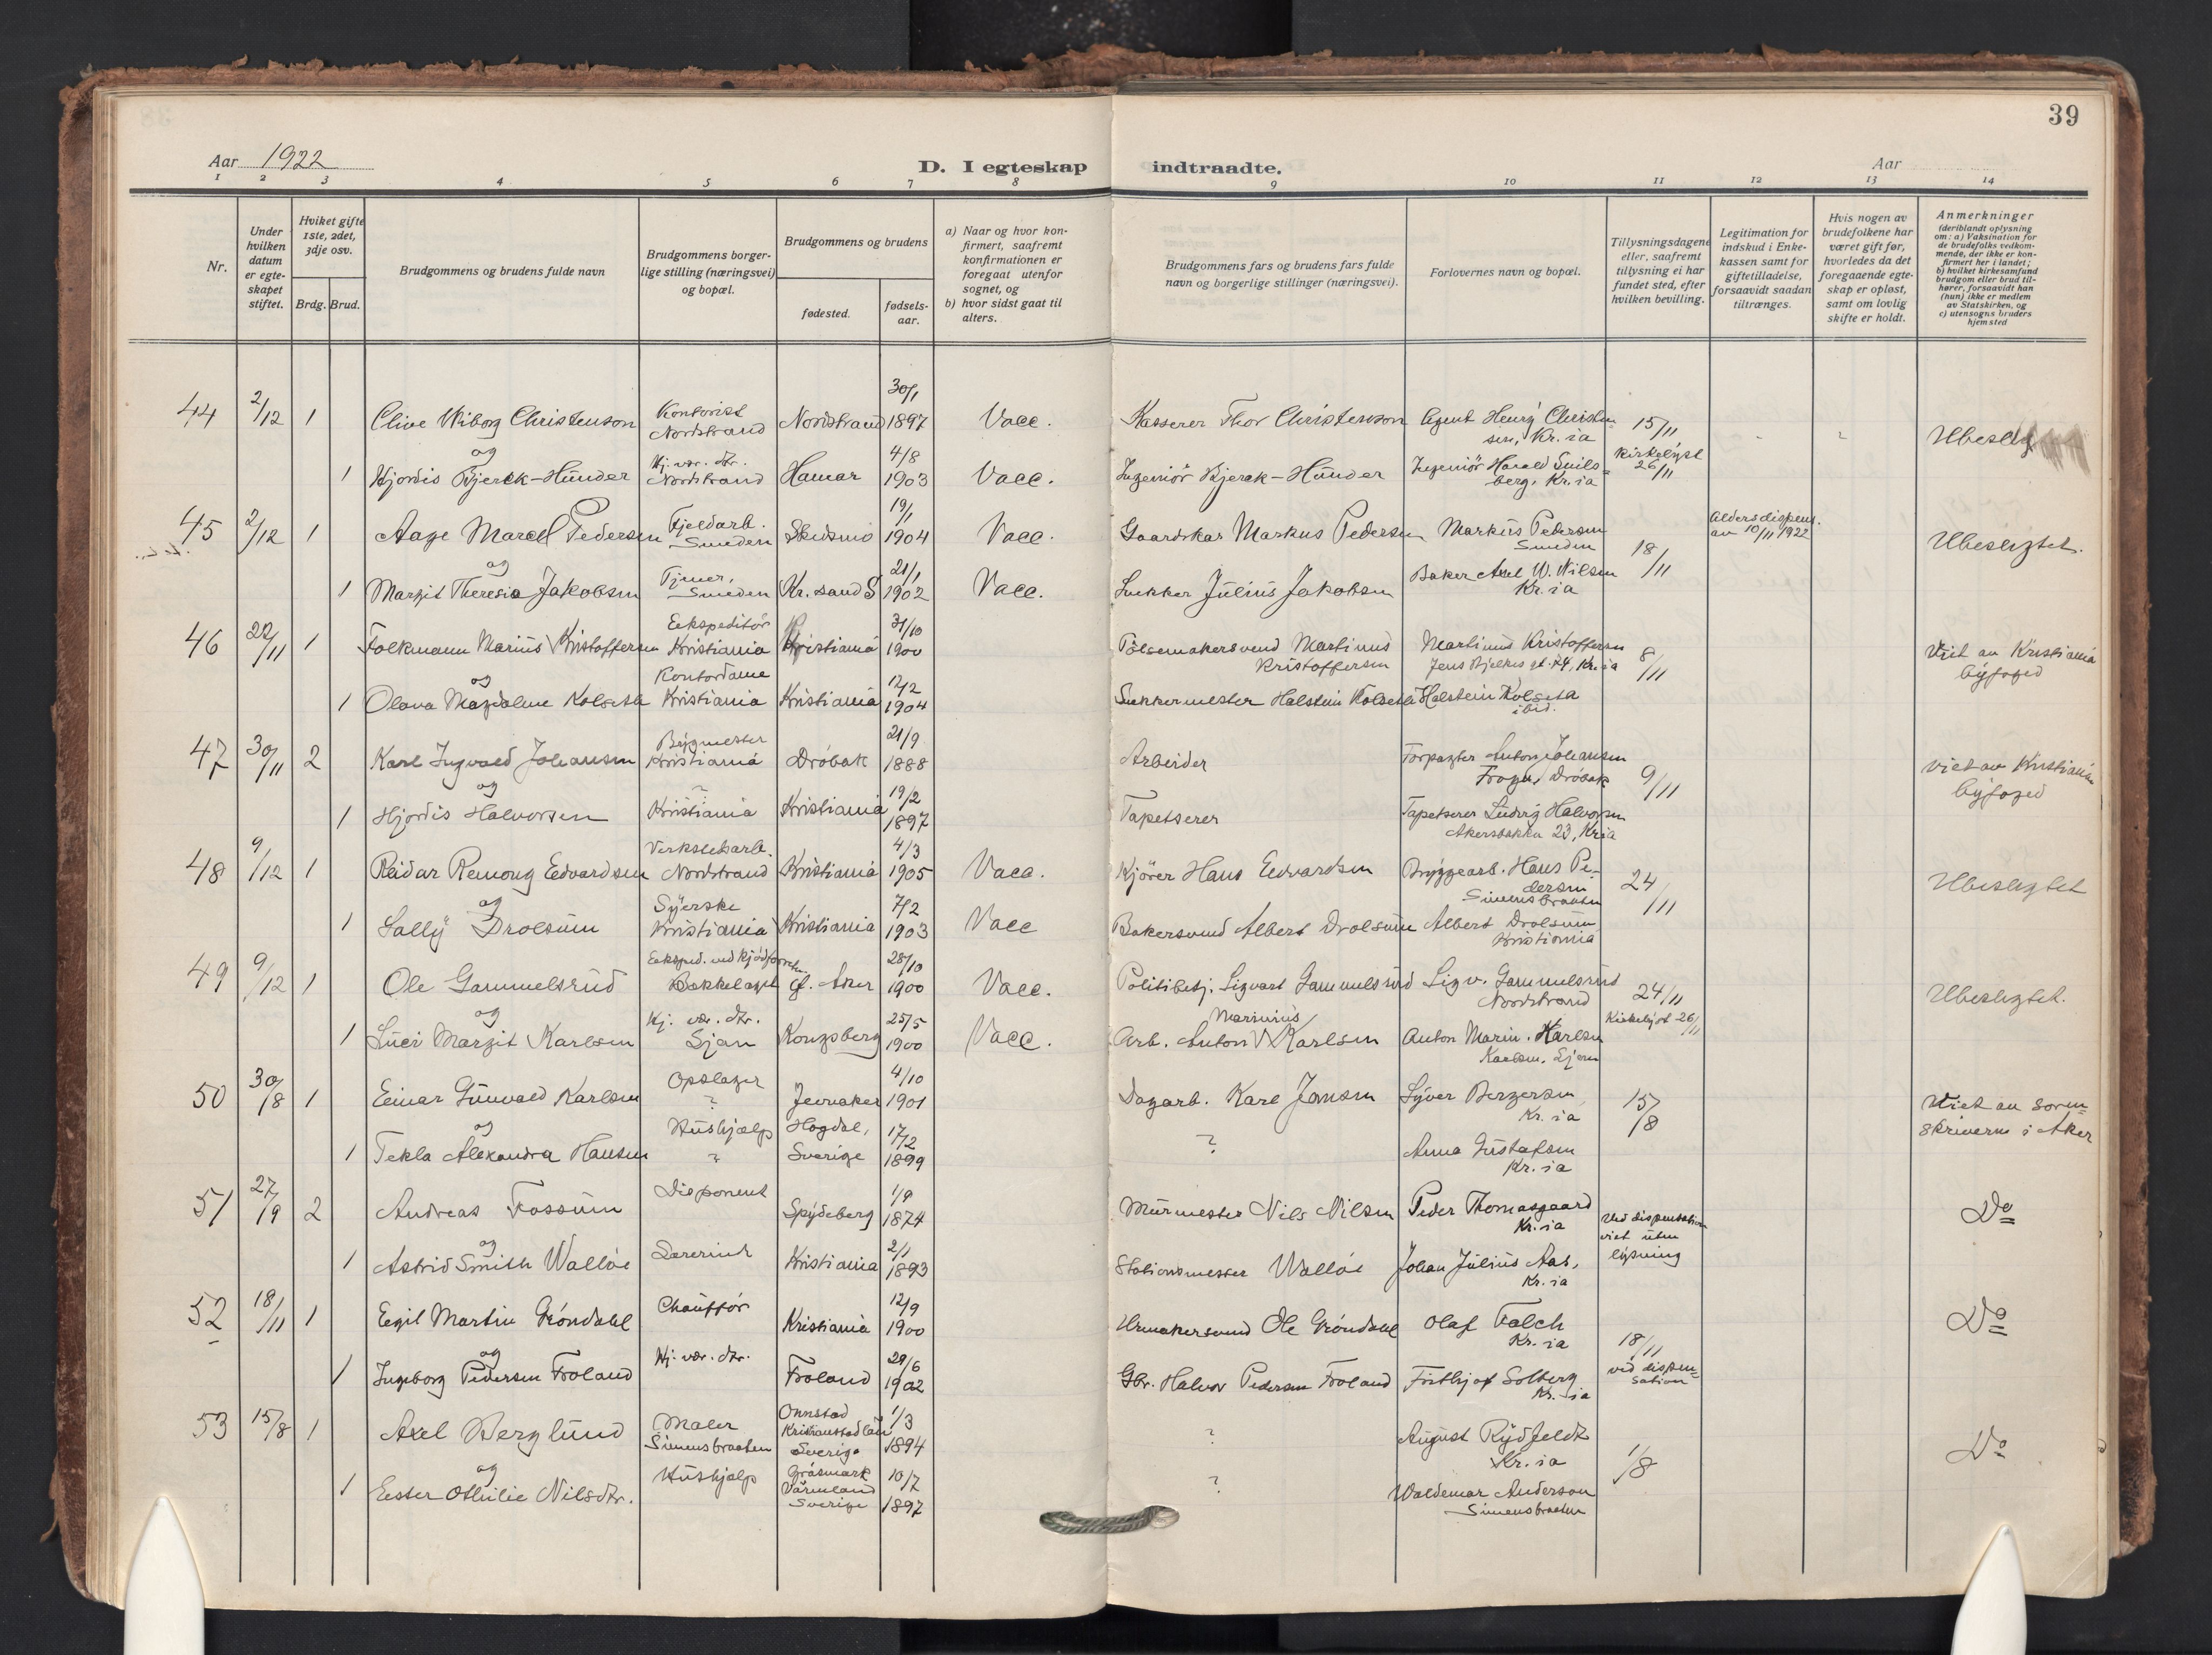 39
Aar 1922
D. I egteskap indtraadte.
Aar
1 2 3 4 5 6 7 8 9 10 11 12 13 14
Nr.
Under hvilken datum er egteskapet stiftet.
Hviket gifte 1ste, 2det, 3dje osv.
Brdg. Brud.
Brudgommens og brudens fulde navn
Brudgommens borgerlige stilling (næringsvei) og bopæl.
Brudgommens og brudens
fødested.
fødselsaar.
a) Naar og hvor konfirmert, saafremt konfirmationen er foregaat utenfor sognet, og
b) hvor sidst gaat til alters.
Brudgommens fars og brudens fars fulde navn og borgerlige stillinger (næringsvei).
Forlovernes navn og bopæl.
Tillysningsdagene eller, saafremt tillysning ei har fundet sted, efter hvilken bevilling.
Legitimation for indskud i Enkekassen samt for giftetilladelse, forsaavidt saadan tiltrænges.
Hvis nogen av brudefolkene har været gift før, hvorledes da det foregaaende egteskap er opløst, samt om lovlig skifte er holdt.
Anmerkninger (deriblandt oplysning om: a) Vaksination for de brudefolks vedkommende, der ikke er konfirmert her i landet; b) hvilket kirkesamfund brudgom eller brud tilhører, forsaavidt han (hun) ikke er medlem av Statskirken, og c) utensogns bruders hjemsted
44 2/12 1 Clive Wiborg Christenson Kontorist Nordstrand Nordstrand 30/1 1897 Vacc. Kasserer Thor Christenson Agent Henry Christensen, Kr.ia 15/11
og
1 Hjordis Bjerck-Hunder Hj. vær. dtr. Nordstrand Hamar 4/8 1903 Vacc. Ingeniør Bjerck-Hunder Ingeniør Harald berg, Kr.ia Kirkelyst 26/11 Ubeslegtet
45 2/12 1 Aage Marcel Pedersen Fjeldarb. Skedsmo 19/1 1904 Vacc. Gaardskar Markus Pedersen Markus Pedersen 18/11 Aldersdispens. av 10/11 1922 Ubeslegtet.
og
1 Margit Theresia Jakobsen Tjener, Kr.sand S 21/1 1902 Vacc. Snekker Julius Jakobsen Baker Axel W. Nilsen Kr.ia
46 22/11 1 Folkmann Marius Kristoffersen Ekspeditør Kristiania Kristiania 31/10 1900 Pølsemakersvend Martinus Kristoffersen Martinus Kristoffersen Jens Bjelkes gt. 74, Kr.ia 8/11 Viet av Kristiania byfoged
og
1 Olava Magdalene Kolseth Kontordame Kristiania Kristiania 12/2 1904 Snekkermester Halstein Kolseth Halstein Kolseth ibid.
47 30/11 2 Karl Ingvald Johansen Bygmester Kristiania Drøbak 21/9 1888 Arbeider Forpagter Anton Johansen Frogn, Drøbak 9/11 Viet av Kristiania byfoged
og
1 Hjordis Halvorsen ? Kristiania Kristiania 19/2 1897 Tapetserer Tapetserer Ludvig Halvorsen Akersbakken 23, Kr.ia
48 9/12 1 Reidar Remong Edvardsen Verkstedarb. Nordstrand Kristiania 4/3 1905 Vacc. Kjører Hans Edvardsen Bryggearb. Hans Pedersen Simensbraaten 24/11 Ubeslegtet
og
1 Sally Drolsum Syerske Kristiania Kristiania 7/2 1903 Vacc Bakersvend Albert Drolsum Albert Drolsum Kristiania
49 9/12 1 Ole Gammelsrud Eksped. ved kjødforretn. Bekkelaget Ø. Aker 28/10 1900 Vacc. Politibetj. Sigvart Gammelsrud Sigv. Gammelsrud Nordstrand 24/11 Ubeslegtet.
og
1 Luci Margit Karlsen Hj. vær. dtr. Ljan Kongsberg 25/5 1900 Vacc. Arb. Anton Marinius Karlsen Anton Marin. Karlsen Karlsen, Ljan Kirkelyst 26/11
50 30/8 1 Einar Gunvald Karlsen Opslager ? Jevnaker 4/10 1901 Dagarb. Karl Jansen Syver Bergersen, Kr.ia 15/8 Viet av sorenskriveren i Aker
og
1 Tekla Alexandra Hansen Hushjælp ? Hogdal, Sverige 17/2 1899 ? Anna Gustafsen Kr.ia
51 27/9 2 Andreas Fossum Disponent Spydeberg 1/9 1874 Murmester Nils Nilsen Peder Thomasgaard Kr.ia Ved dispensation viet uten lysning Do
og
1 Astrid Smith Walløe Lærerinde Kristiania 2/1 1893 Stationsmester Walløe Johan Julius Aas, Kr.ia
52 18/11 1 Egil Martin Grøndahl Chauffør Kristiania 12/9 1900 Urmakersvend Ole Grøndahl Olaf Falch Kr.ia 18/11 ved dispensation Do
og
1 Ingeborg Pedersen Froland Hj. vær. dtr. Froland 29/6 1902 Gbr. Halvor Pedersen Froland Fritjof Solberg Kr.ia
53 15/8 1 Axel Berglund Maler Simensbraaten Onnstad Kristianstad län Sverige 1/3 1894 ? August Rydfeldt Kr.ia 1/8 Do
og
1 Ester Othilie Nilsdtr. Hushjælp Gräsmark Värmland Sverige 10/7 1897 ? Waldemar Anderson Simensbraaten